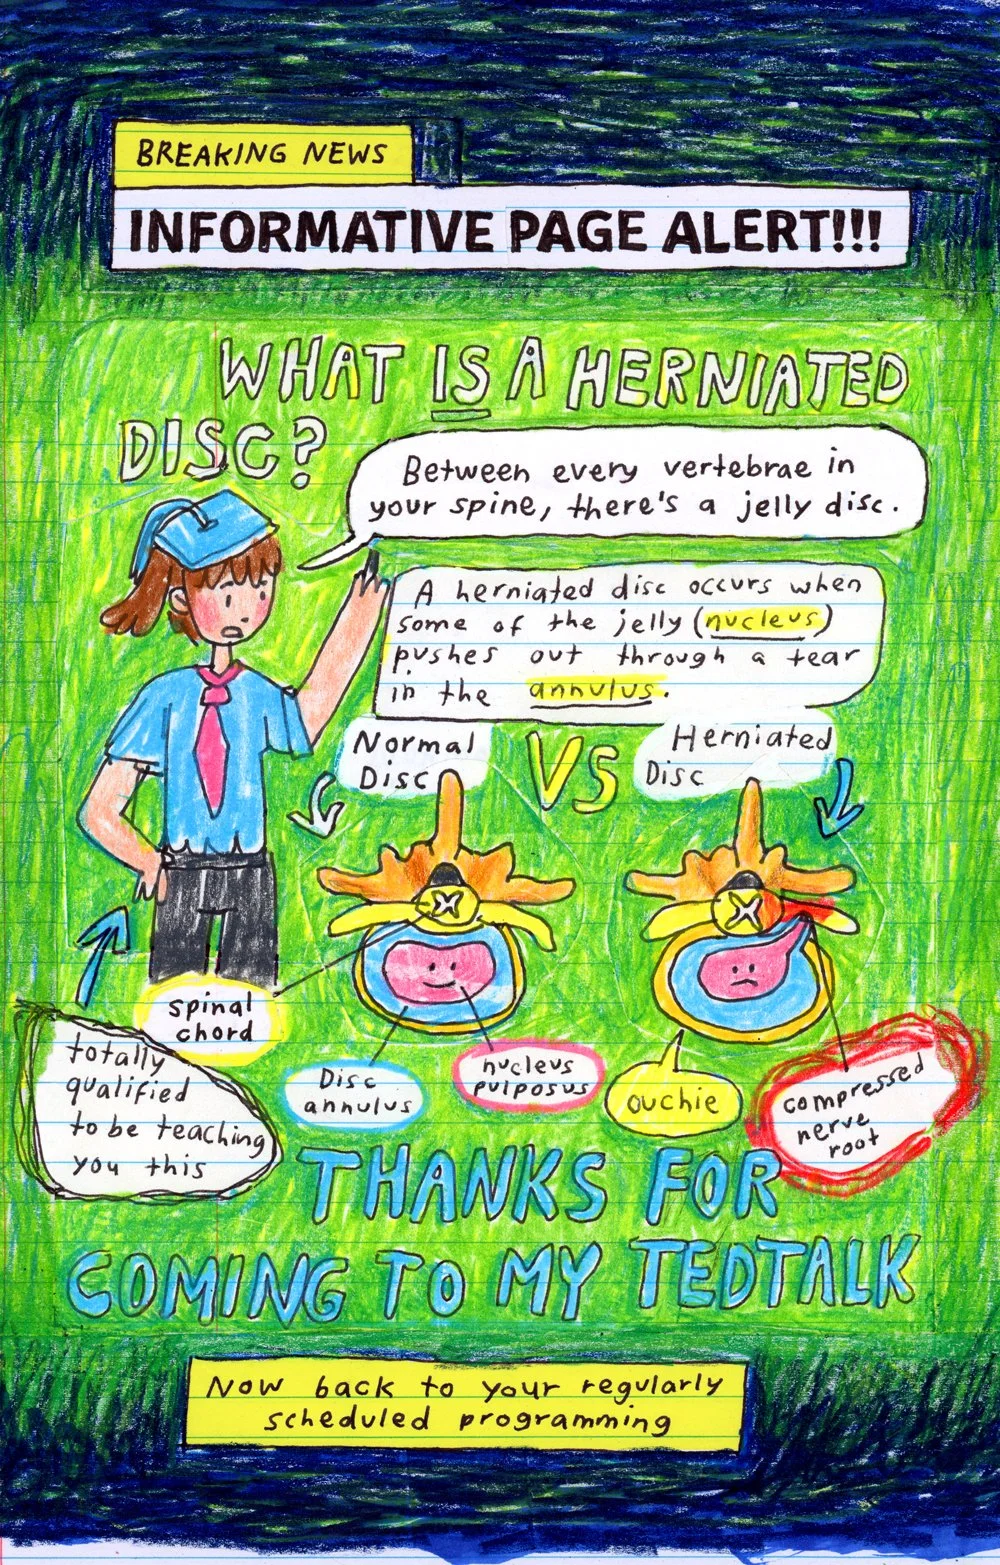 BREAKING NEWS
INFORMATIVE PAGE ALERT!!!
WHAT IS A HERNIATED
DISC?
Between every vertebrae in
your spine, there's a jelly disc.
A herniated disc occurs when
some of the jelly (nucleus)
pushes out through a tear
in the annulus.
Normal
Disc
VS
Herniated
Disc
spinal
chord
totally
qualified
to be teaching
you this
Disc
annulus
nucleus
pulposus
ouchie
compressed
nerve
root
THANKS FOR
COMING TO MY TEDTALK
Now back to your regularly
scheduled programming